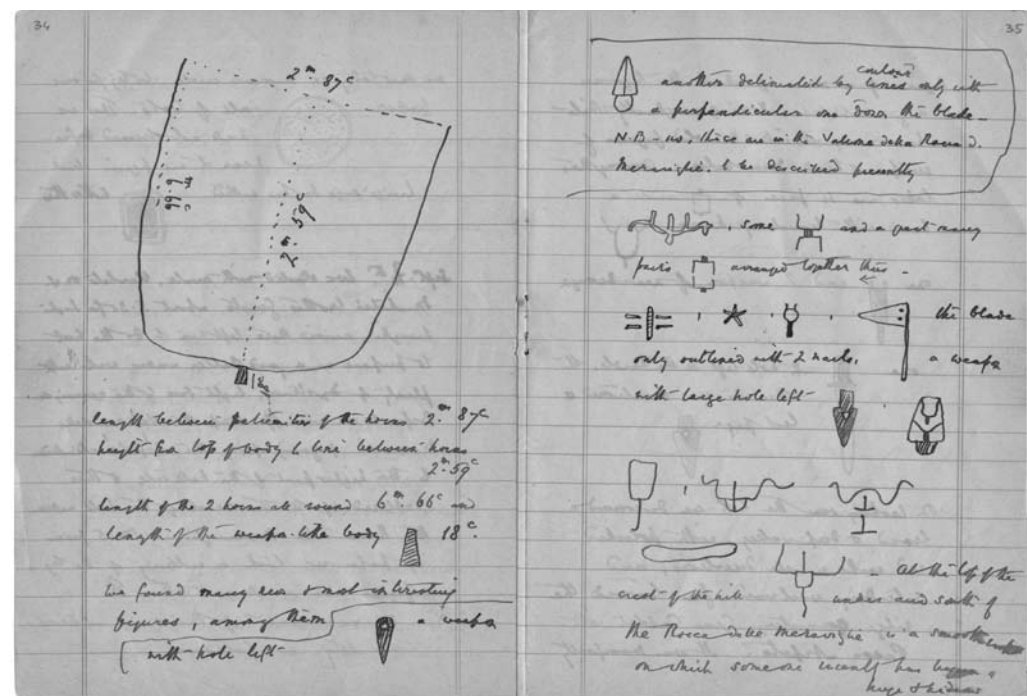 34
2m. 87c
6m. 66c
2m. 59c
18c
length between extremities of the horns 2m. 87c
height from top of body to line between horns
2m. 59c
length of the 2 horns all round 6m. 66c and
length of the weapon-like body 18c.
We found many new & most interesting
figures, among them a weapon
with hole left
35
another delineated by contour lines only with
a perpendicular one down the blade -
N.B - no, these are in the Vallone delle Rocca d.
Meraviglie. to be described presently
, some and a great many
pairs arranged together thus -
the blade
only outlined with 2 nails. a weapon
with large hole left
- At the top of the
crest of the hill under and south of
the Rocca delle Meraviglie is a smooth
on which someone recently has
huge & hideous